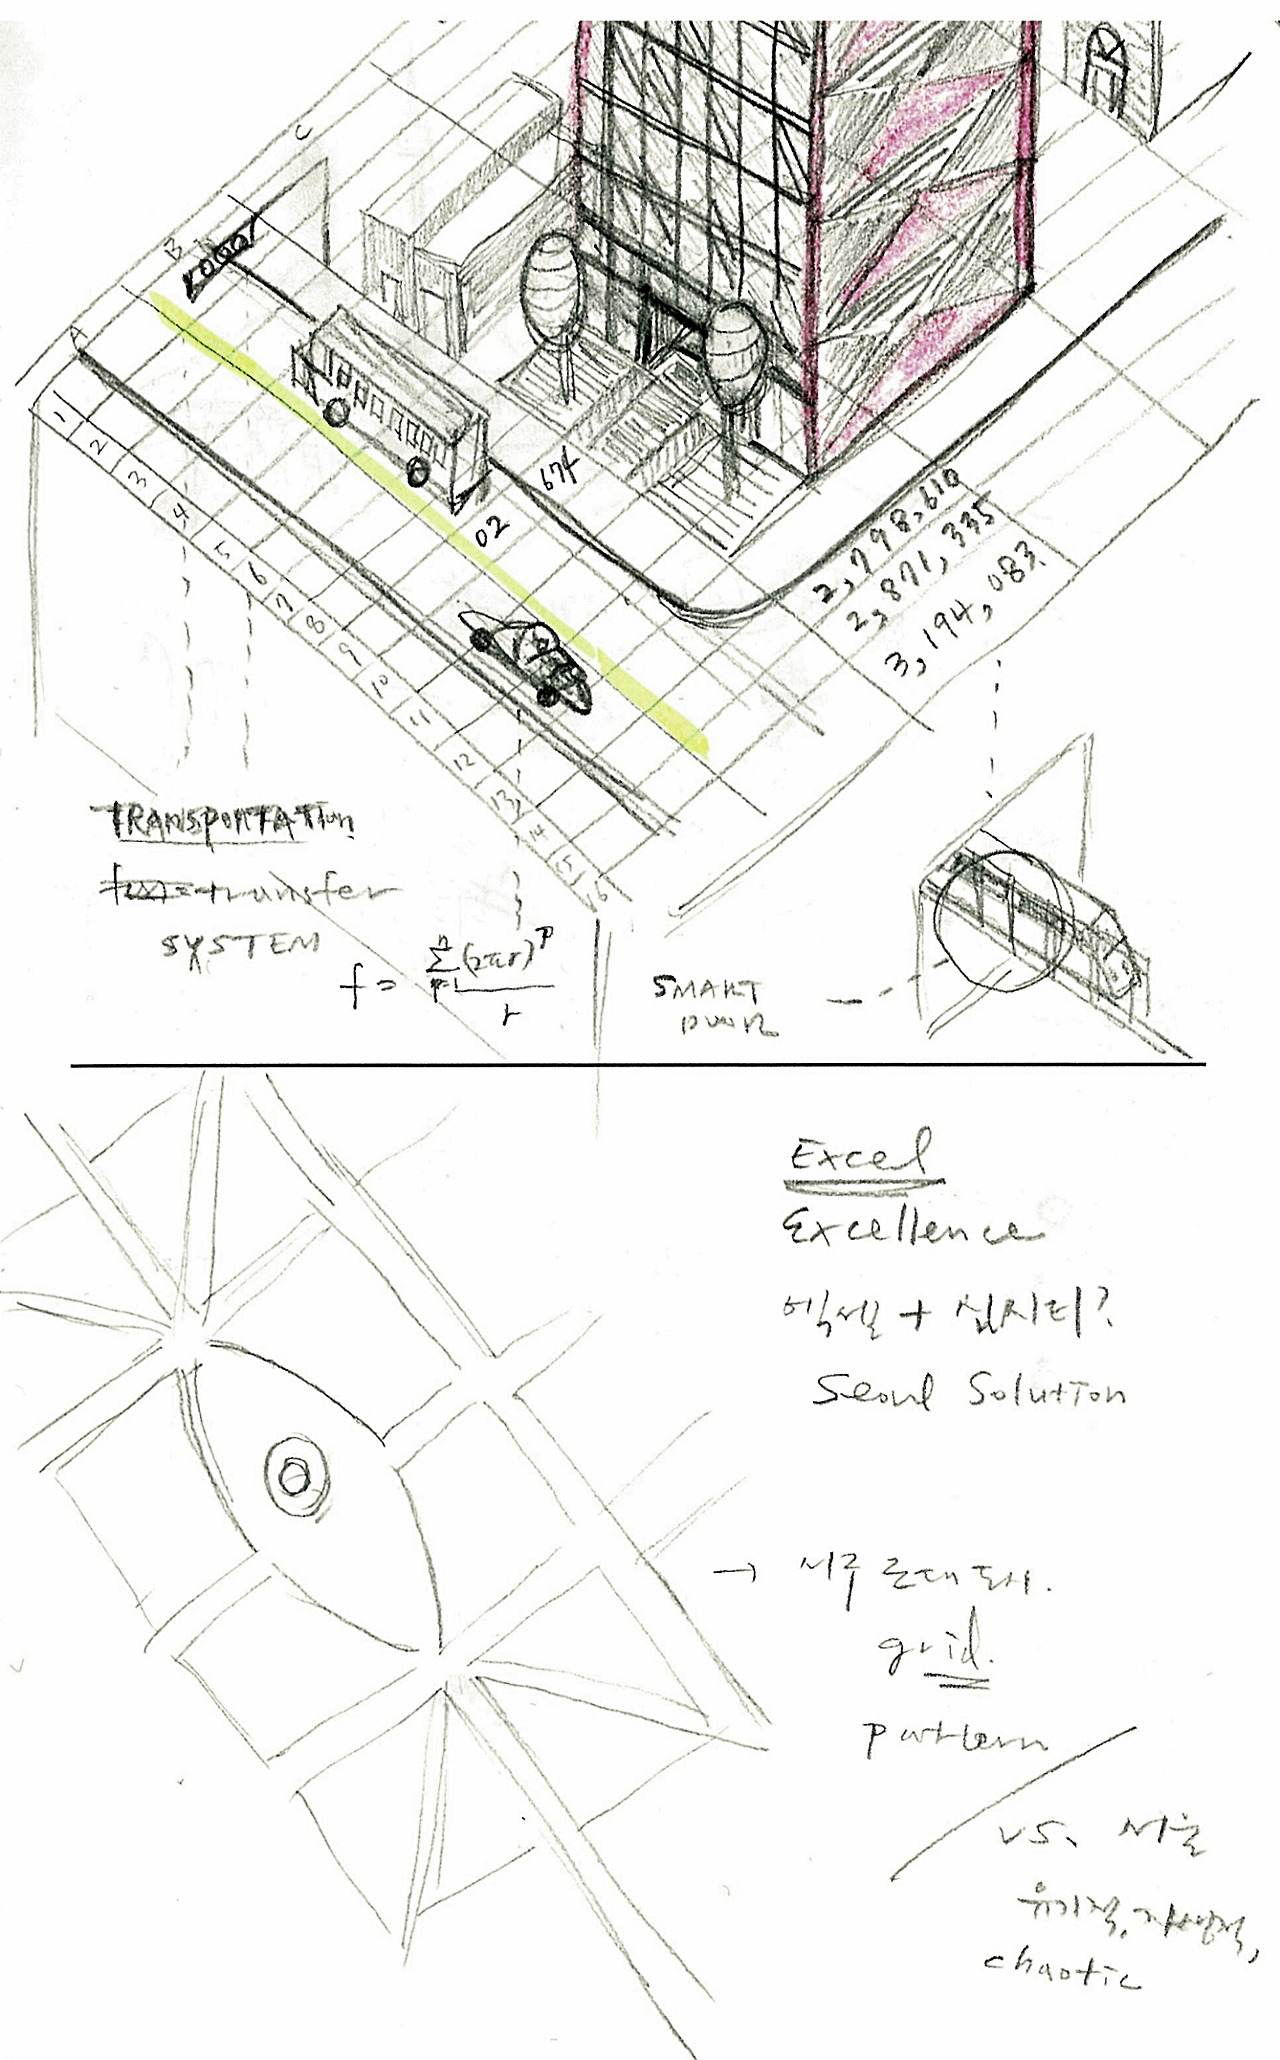 C
B
A
1000/
1 2 3 4 5 6 7 8 9 10 11 12 13 14 15 16
02
674
2,798,610
2,871,335
3,194,083
TRANSPORTATION
transfer
SYSTEM
f = Σ (2πr)^p / r
n
p=1
SMART
Excel
Excellence
엑셀 + 심시티?
Seoul Solution
→ 서구 근대 도시.
grid.
pattern
vs. 서울
유기적, 자생적,
chaotic